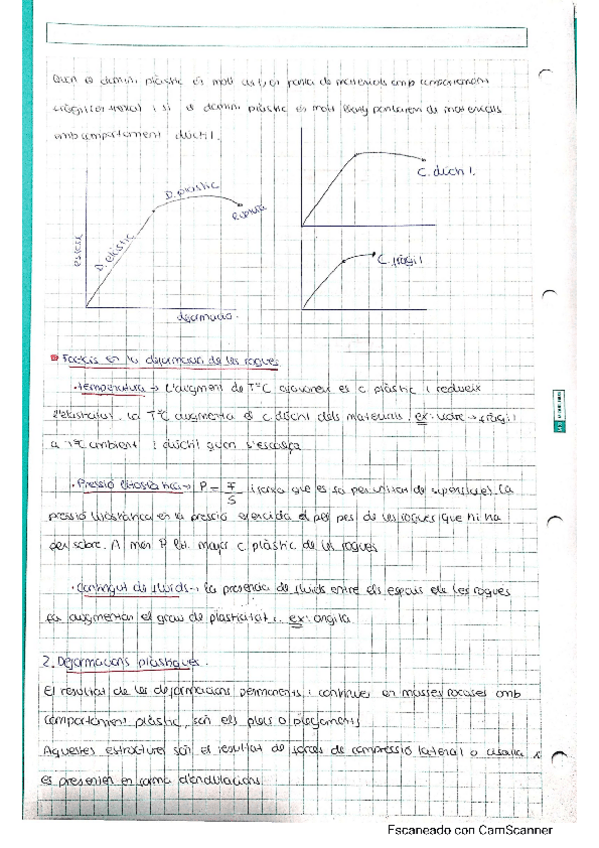 Quan el domini plàstic és molt curt, es parla de materials amb comportament
fràgil (es trenca) i si el domini plàstic és molt llarg parlarem de materials
amb comportament dúctil.
C. dúctil.
D. plàstic
ruptura
D. elàstic
esforç
deformació.
C. fràgil
Factors en la deformació de les roques
· Temperatura → L'augment de TªC afavoreix es c plàstic i redueix
l'elasticitat. La TªC augmenta el c. dúctil dels materials. ex: vidre → fràgil
a Tª ambient i dúctil quan s'escalfa
· Pressió litostàtica → P = F/S (força que es fa per unitat de superfície). La
pressió litostàtica és la pressió exercida pel pes de les roques que hi ha
per sobre. A més P lit. major c plàstic de les roques
· Contingut de fluids → la presència de fluids entre els espais de les roques
fa augmentar el grau de plasticitat. ex: argila
2. Deformacions plàstiques.
El resultat de les deformacions permanents i contínues en masses rocoses amb
comportament plàstic, són els plecs o plegaments
Aquestes estructures són el resultat de forces de compressió lateral o cisalla
es presenten en forma d'ondulacions.
Escaneado con CamScanner